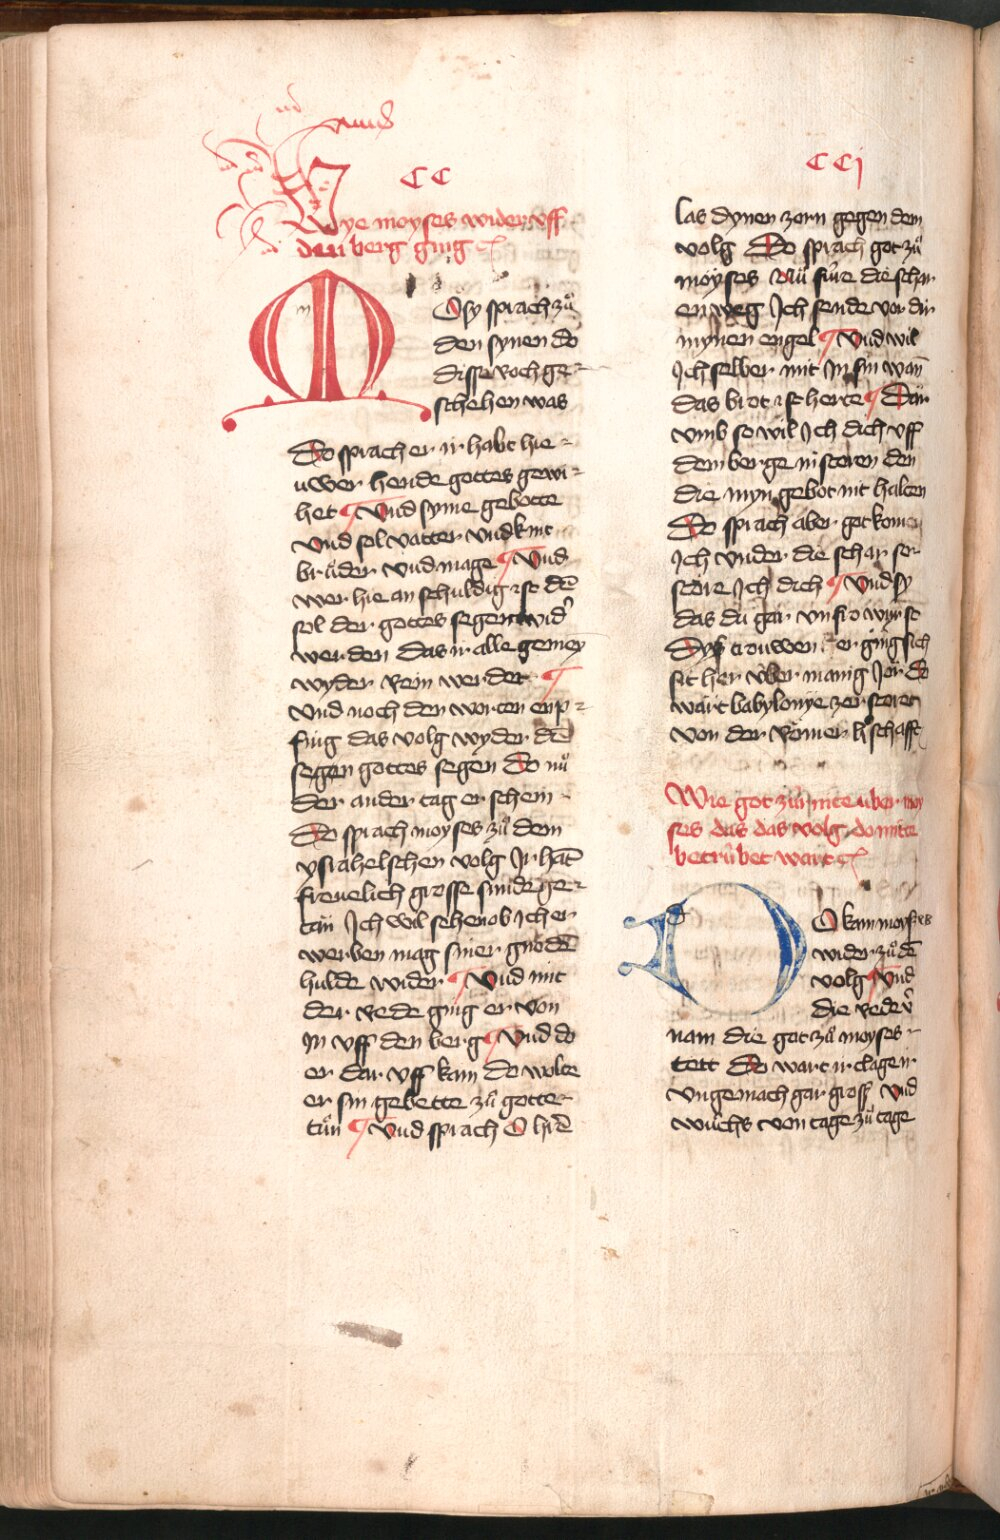 CC
Wye moyses wider vff
den berg ging
MOsy sprach zuͦ
den synen do
disse roch ge-
schehen was
Do sprach er ir habt hie-
uwer hende gottes gewi-
het Vnd syme gebotte
vnd sol vatter vnd kint
bruͤder vnd mage Vnd
wer hie an schuldig ist dē
sol der gottes segen wid'
werden Das ir alle gemey
wyder rein werdet
Vnd noch den worten enp-
fing das volg wyder dē
segen gottes segen Do nuͦ
der ander tag er schein
Do sprach moyses zuͦ dem
ysrahelschen volg Ir hāt
freuelich grosse sunde ge-
tan Ich wil sehen ob ich er
werben mag siner gnodē
hulde wider Vnd mit
der rede ging er von
In vff den berg Vnd do
er dar vff kam do wolte
er sin gebette zuͦ gotte
tuͦn Vnd sprach O h're
CCj
las dynen zorn gegen dem
volg Do sprach got zuͦ
moyses Nuͦ fuͤre die schar
en weg Ich sende vor dir
mynen engel Vnd wil
Ich selber mit In sin wan
das brot ist herte Dar
vmb so wil Ich dich vff
dem berge nistoren den
die myn gebot nit halten
Do sprach aber got kome
Ich vnder die schar ser-
store Ich dich Vnd sy
das du gar vnfro wirst
Dyß trouwen er ging sich
sit her vͤber manig Jor Do
wart babylonye zerstoret
von der Roͤmer h'schafft
Wie got zuͤrnite uber moy
ses das das volg do mitte
betruͤbet wart
DO kam moyses
wider zuͦ dē
volg Vnd
die rede v'
nam die got zuͦ moyses
tett Do wart ir clage ir
vngemach gar groß Vnd
wuͦchs von tage zuͦ tage